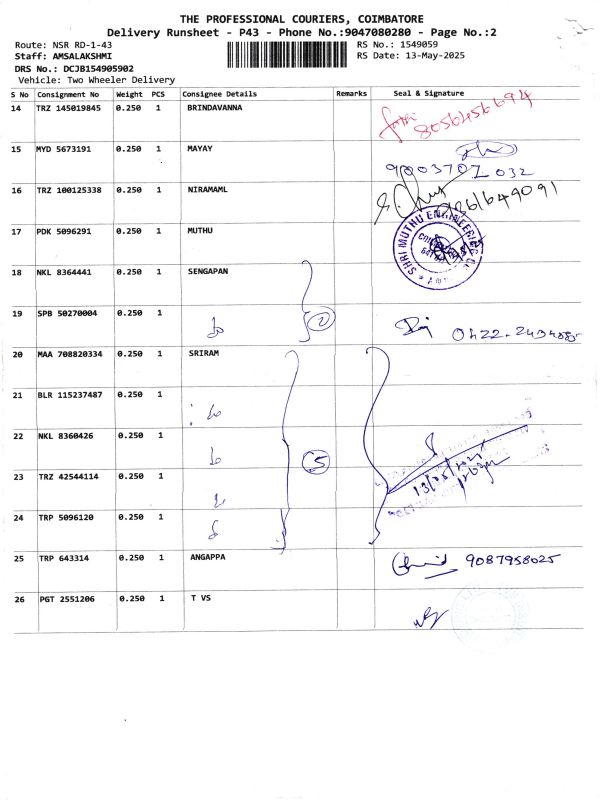 THE PROFESSIONAL COURIERS, COIMBATORE
Delivery Runsheet - P43 - Phone No.:9047080280 - Page No.:2
Route: NSR RD-1-43 RS No.: 1549059
Staff: AMSALAKSHMI RS Date: 13-May-2025
DRS No.: DCJB154905902
Vehicle: Two Wheeler Delivery
S No Consignment No Weight PCS Consignee Details Remarks Seal & Signature
14 TRZ 145019845 0.250 1 BRINDAVANNA 8056456694
15 MYD 5673191 0.250 1 MAYAY
9003707032
16 TRZ 100125338 0.250 1 NIRAMAML
17 PDK 5096291 0.250 1 MUTHU
SHRI MUTHU ENGINEERING
18 NKL 8364441 0.250 1 SENGAPAN
19 SPB 50270004 0.250 1
do 2
20 MAA 708820334 0.250 1 SRIRAM
21 BLR 115237487 0.250 1
do
22 NKL 8360426 0.250 1
do 5
23 TRZ 42544114 0.250 1
do
24 TRP 5096120 0.250 1
do
25 TRP 643314 0.250 1 ANGAPPA 9087958025
26 PGT 2551206 0.250 1 T VS